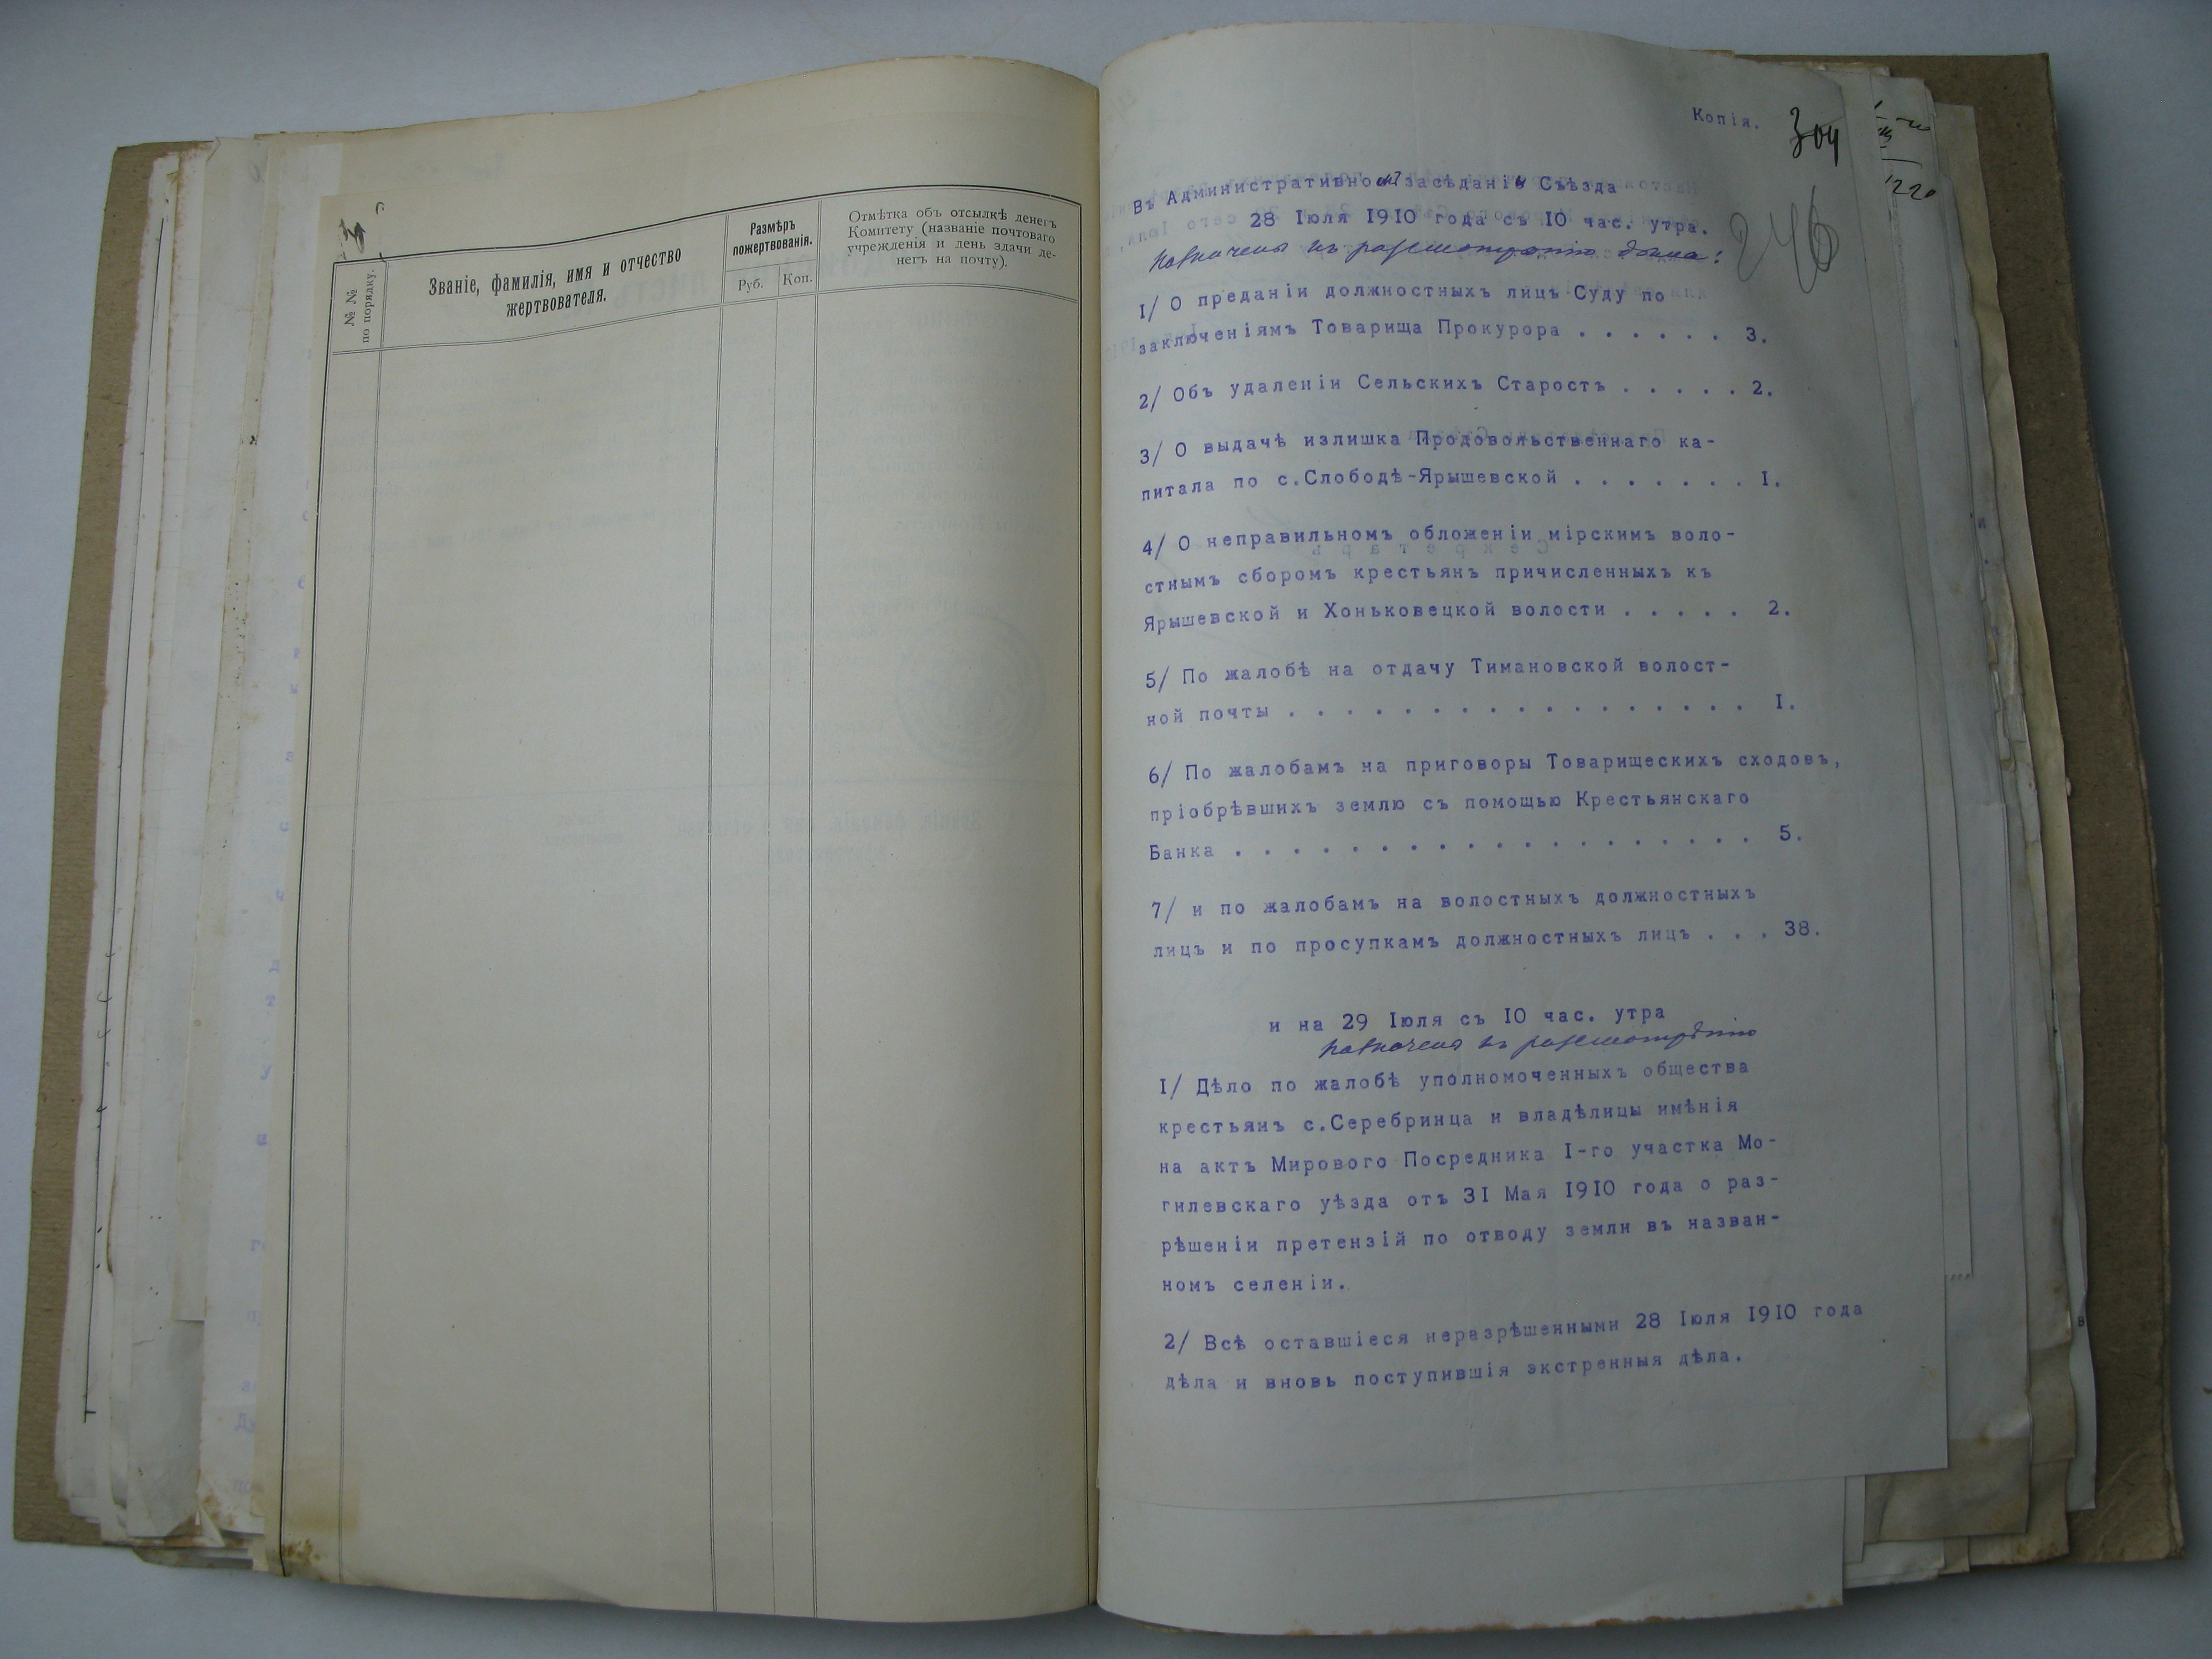 № №
по порядку.
Званіе, фамилія, имя и отчество
жертвователя.
Размѣръ
пожертвованія.
Руб.
Коп.
Отмѣтка объ отсылкѣ денегъ
Комитету (названіе почтоваго
учрежденія и день здачи де-
негъ на почту).
Копія.
304
246
Въ Административномъ засѣданіи Съѣзда
28 Іюля 1910 года съ 10 час. утра.
назначены къ разсмотрѣнію дѣла:
I/ О преданіи должностныхъ лицъ Суду по
заключеніямъ Товарища Прокурора . . . . . . 3.
2/ Объ удаленіи Сельскихъ Старостъ . . . . . 2.
3/ О выдачѣ излишка Продовольственнаго ка-
питала по с.Слободѣ-Ярышевской . . . . . . . I.
4/ О неправильномъ обложеніи мірскимъ воло-
стнымъ сборомъ крестьянъ причисленныхъ къ
Ярышевской и Хоньковецкой волости . . . . . 2.
5/ По жалобѣ на отдачу Тимановской волост-
ной почты . . . . . . . . . . . . . . . . I.
6/ По жалобамъ на приговоры Товарищескихъ сходовъ,
пріобрѣвшихъ землю съ помощью Крестьянскаго
Банка . . . . . . . . . . . . . . . . . . 5.
7/ и по жалобамъ на волостныхъ должностныхъ
лицъ и по просупкамъ должностныхъ лицъ . . . 38.
и на 29 Іюля съ IO час. утра
назначена къ разсмотрѣнію
I/ Дѣло по жалобѣ уполномоченныхъ общества
крестьянъ с.Серебринца и владѣлицы имѣнія
на актъ Мирового Посредника I-го участка Мо-
гилевскаго уѣзда отъ 3I Мая I9IO года о раз-
рѣшеніи претензій по отводу земли въ назван-
номъ селеніи.
2/ Всѣ оставшіеся неразрѣшенными 28 Іюля I9IO года
дѣла и вновь поступившія экстренныя дѣла.